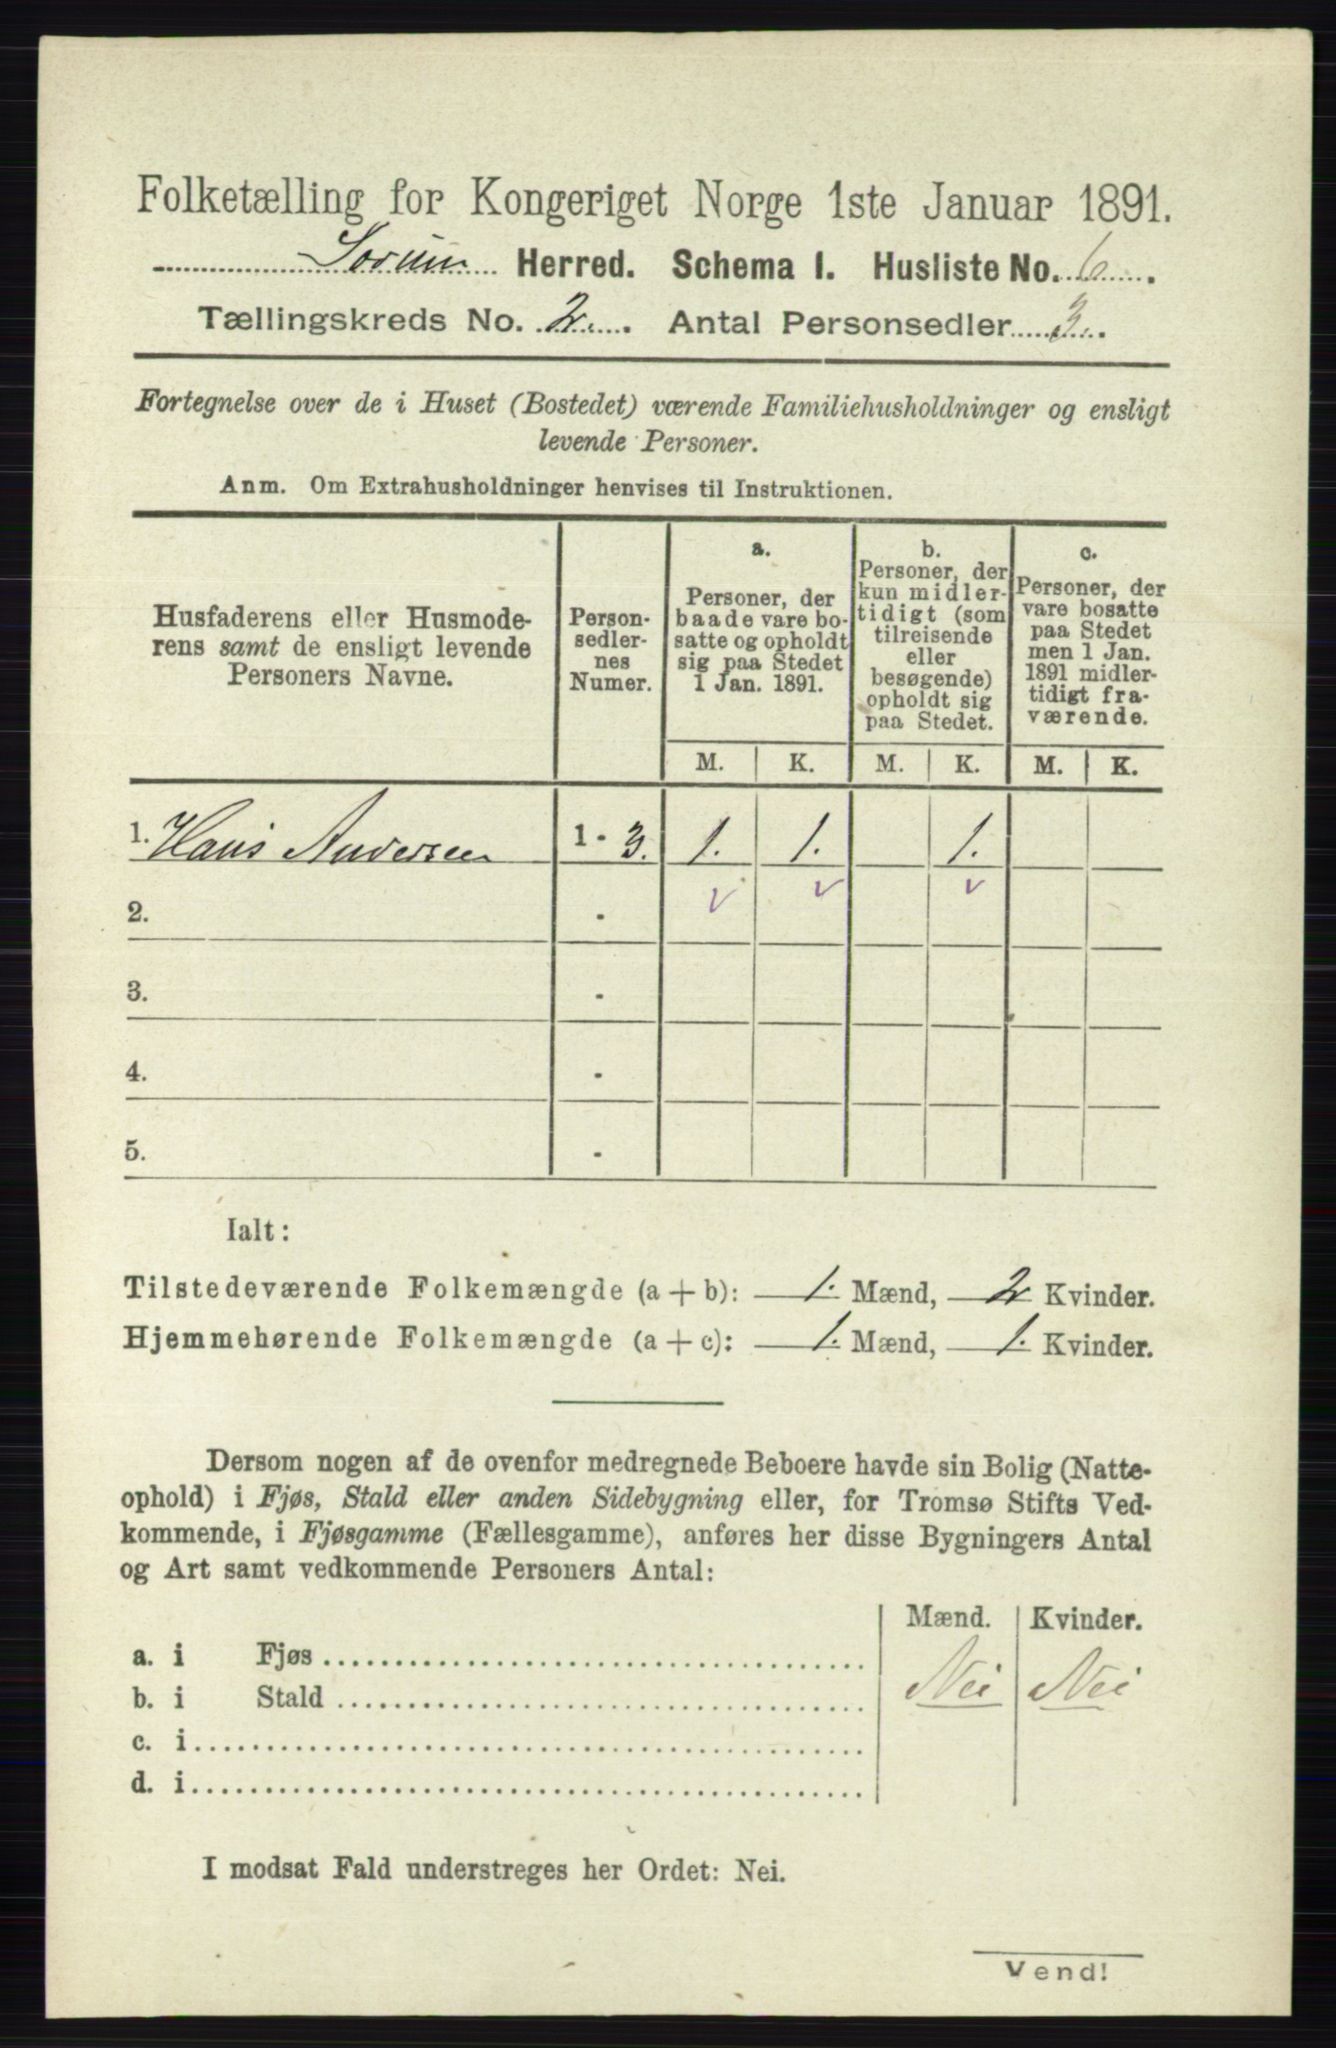 Folketælling for Kongeriget Norge 1ste Januar 1891.
Sørum Herred. Schema I. Husliste No. 6.
Tællingskreds No. 2. Antal Personsedler 3.
Fortegnelse over de i Huset (Bostedet) værende Familiehusholdninger og ensligt
levende Personer.
Anm. Om Extrahusholdninger henvises til Instruktionen.
Husfaderens eller Husmode-
rens samt de ensligt levende
Personers Navne.
Person-
sedler-
nes
Numer.
a.
Personer, der
baade vare bo-
satte og opholdt
sig paa Stedet
1 Jan. 1891.
b.
Personer, der
kun midler-
tidigt (som
tilreisende
eller
besøgende)
opholdt sig
paa Stedet.
c.
Personer, der
vare bosatte
paa Stedet
men 1 Jan.
1891 midler-
tidigt fra-
værende.
M. K. M. K. M. K.
1. Hans Andersen 1 - 3. 1. 1. 1.
2. -
3. -
4. -
5. -
Ialt:
Tilstedeværende Folkemængde (a + b): 1. Mænd, 2 Kvinder.
Hjemmehørende Folkemængde (a + c): 1. Mænd, 1. Kvinder.
Dersom nogen af de ovenfor medregnede Beboere havde sin Bolig (Natte-
ophold) i Fjøs, Stald eller anden Sidebygning eller, for Tromsø Stifts Ved-
kommende, i Fjøsgamme (Fællesgamme), anføres her disse Bygningers Antal
og Art samt vedkommende Personers Antal:
Mænd. Kvinder.
a. i Fjøs
b. i Stald Nei Nei
c. i
d. i
I modsat Fald understreges her Ordet: Nei.
Vend!